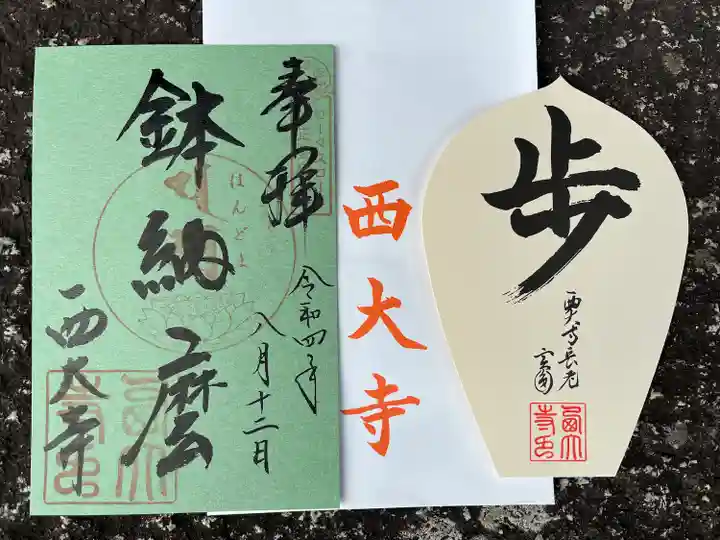 奉拝
令和四年
八月十二日
鉢納麿
はんどま
西大寺
西大寺
歩
西大寺長老